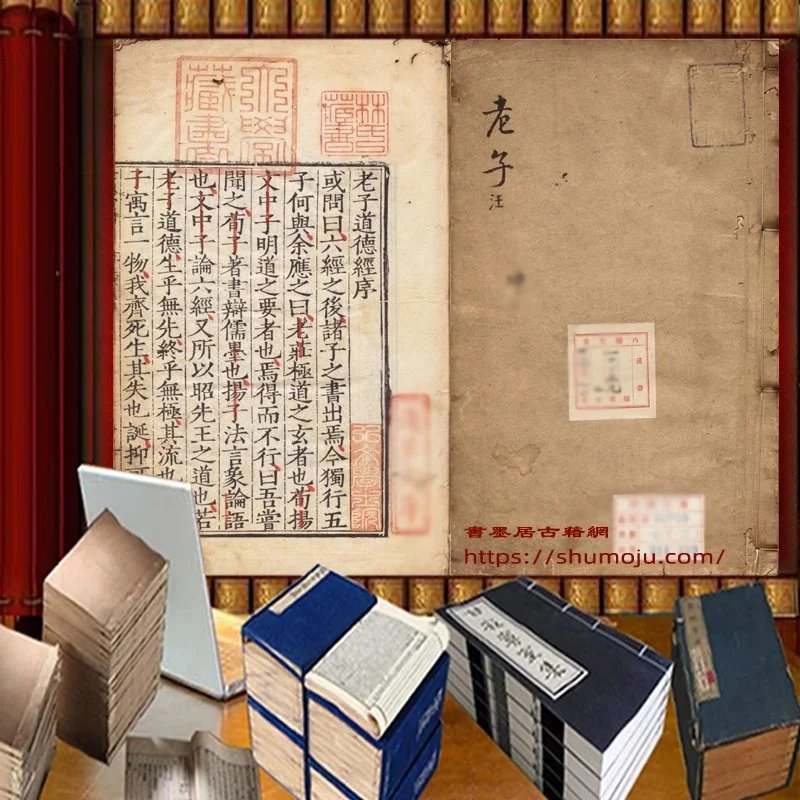 老子
林氏
藏書
老子道德經序
或問曰六經之後諸子之書出焉今獨行五
子何與余應之曰老莊極道之玄者也荀揚
文中子明道之要者也焉得而不行曰吾嘗
聞之荀子著書辯儒墨也揚子法言象論語
也文中子論六經又所以昭先王之道也若
老子道德生乎無先終乎無極其流也
子寓言一物我齊死生其失也誕抑
書墨居古籍網
https://shumoju.com/